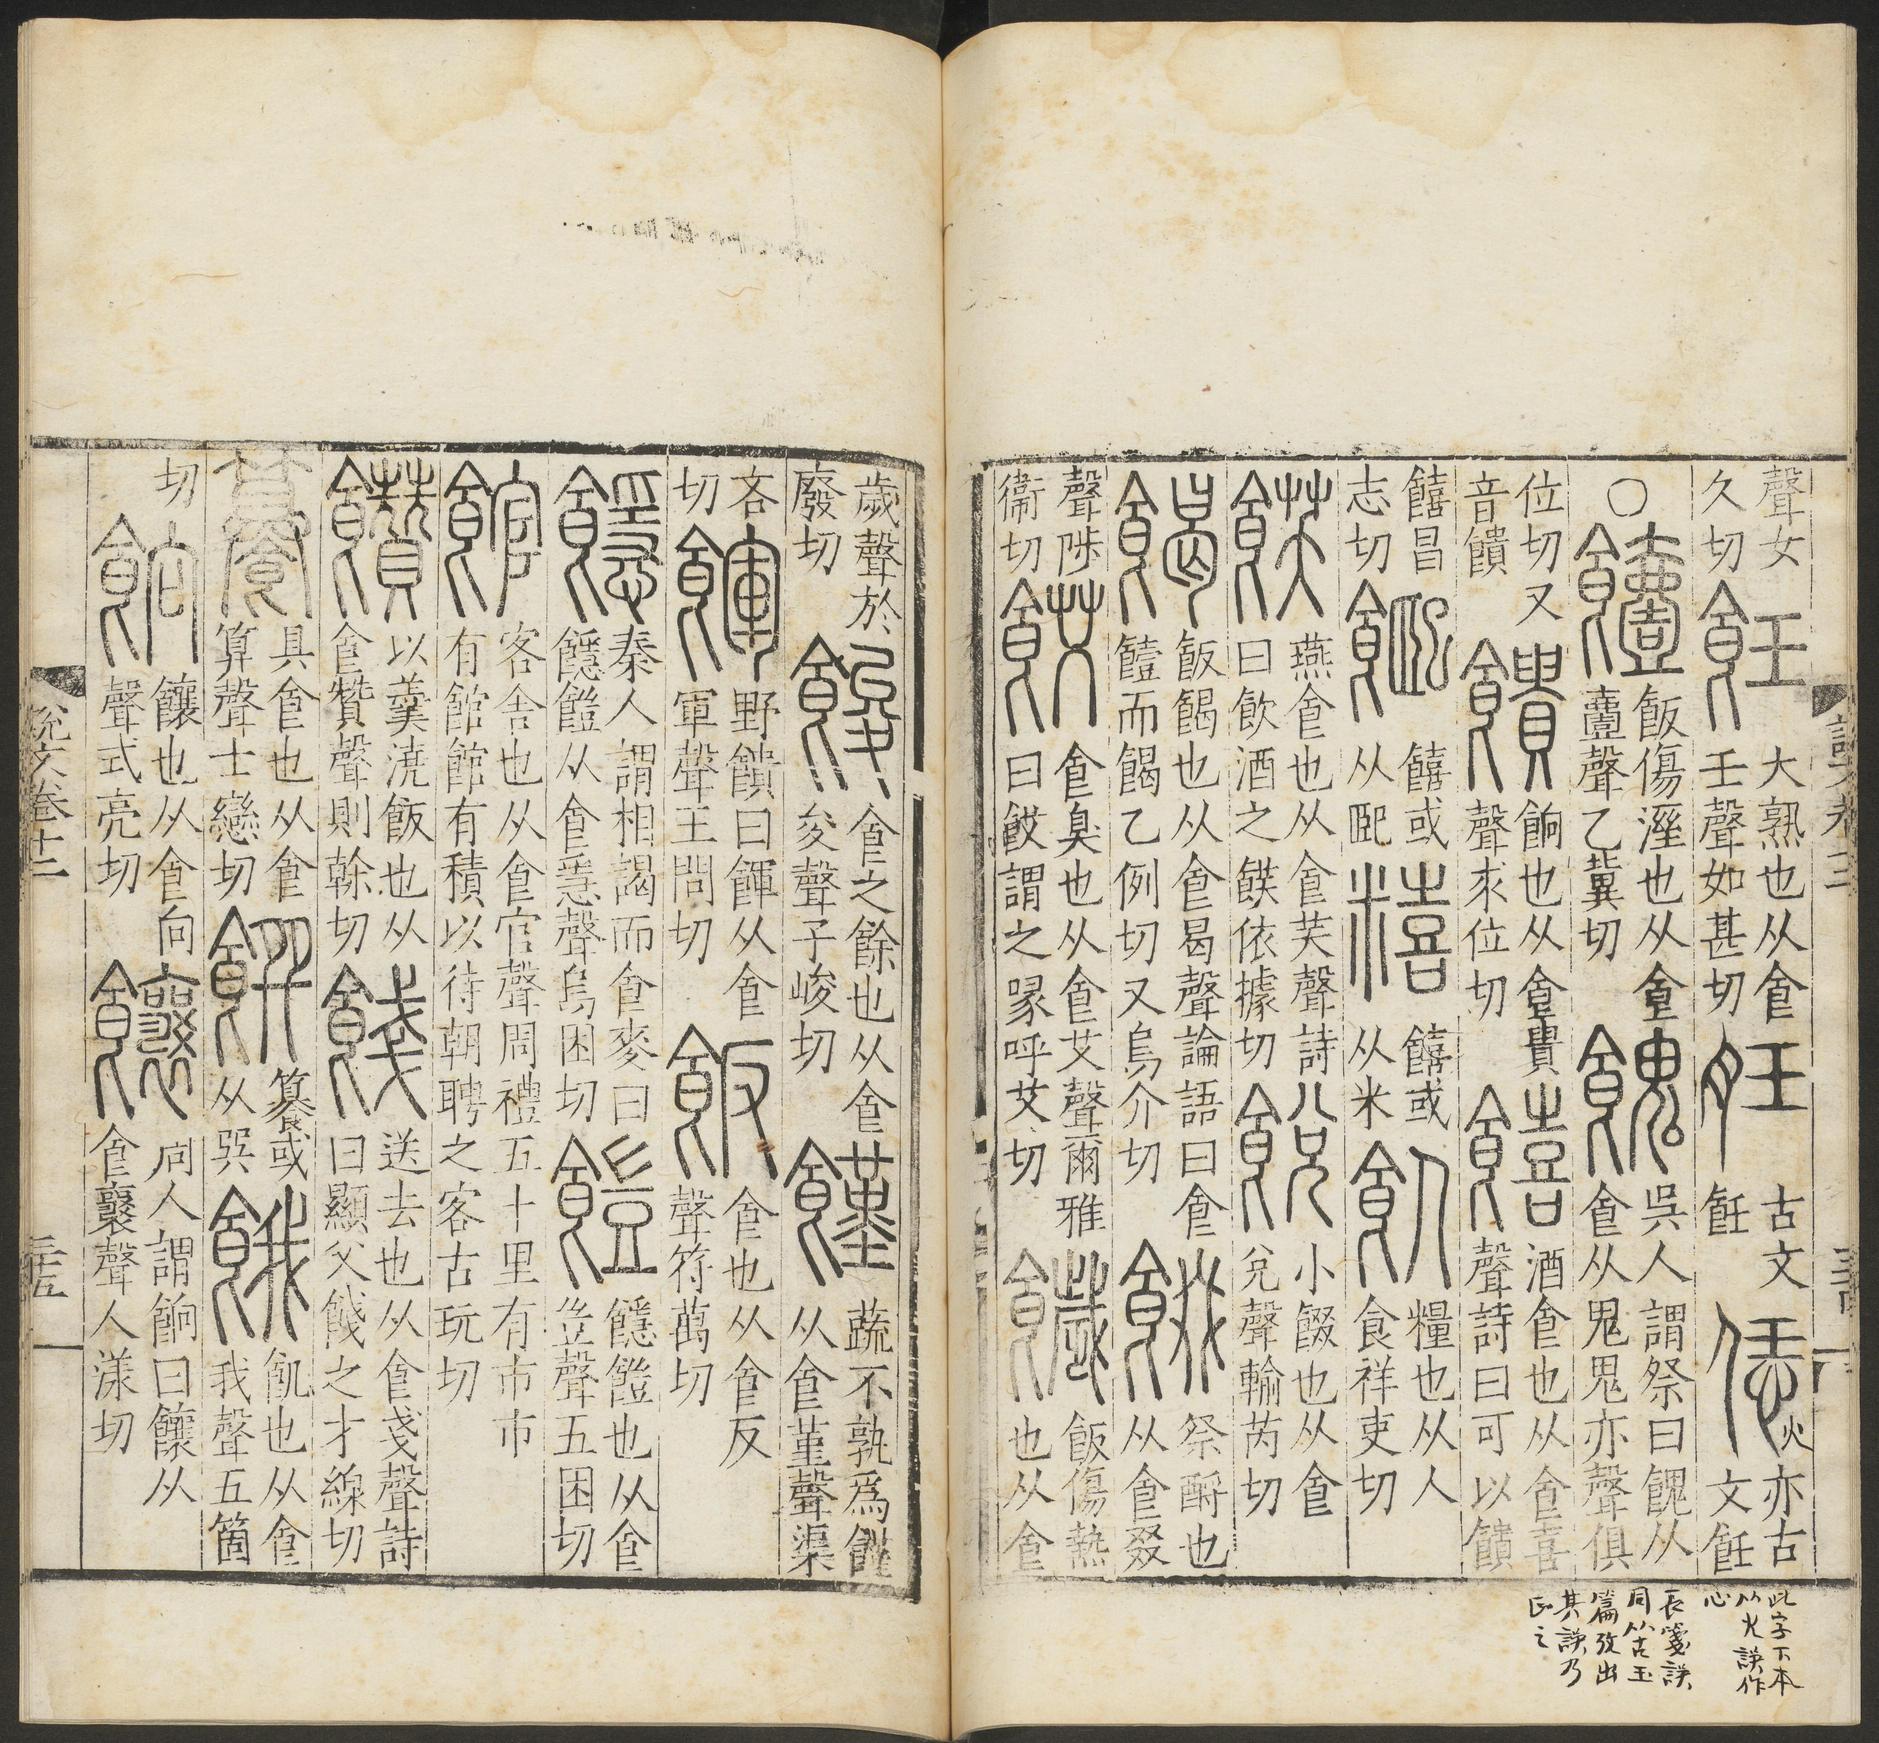 聲女久切飪大熟也从食壬聲如甚切𦚮古文飪恁亦古文飪
○饐飯傷溼也从食壹聲乙冀切餽吳人謂祭曰餽从食从鬼鬼亦聲俱
位切又音饋饋餉也从食貴聲求位切饎酒食也从食喜聲詩曰可以饋
饎昌志切饎或从巸糦饎或从米飤糧也从人食祥吏切
䬴燕食也从食芺聲詩曰飲酒之䬴依據切𩜋小餟也从食兌聲輸芮切
餲飯餲也从食曷聲論語曰食饐而餲乙例切又烏介切餟祭酹也从食叕
聲陟衞切餀食臭也从食艾聲爾雅曰餀謂之喙呼艾切饖飯傷熱也从食
此字下本
从火誤作
心
長箋誤
同从古玉
篇攷出
其誤乃
正之
歲聲於廢切餕食之餘也从食夋聲子峻切饉蔬不孰爲饉从食堇聲渠
吝切餫野饋曰餫从食軍聲王問切飯食也从食反聲符萬切
䭡秦人謂相謁而食麥曰䭡䭓从食㥯聲烏困切䭓䭡䭓也从食豈聲五困切
館客舍也从食官聲周禮五十里有市市有館館有積以待朝聘之客古玩切
饡以羹澆飯也从食贊聲則榦切餞送去也从食戔聲詩曰顯父餞之才線切
籑具食也从食算聲士戀切饌籑或从巽餓飢也从食我聲五箇
切餉饟也从食向聲式亮切饟周人謂餉曰饟从食襄聲人漾切
說文卷十二 三十五